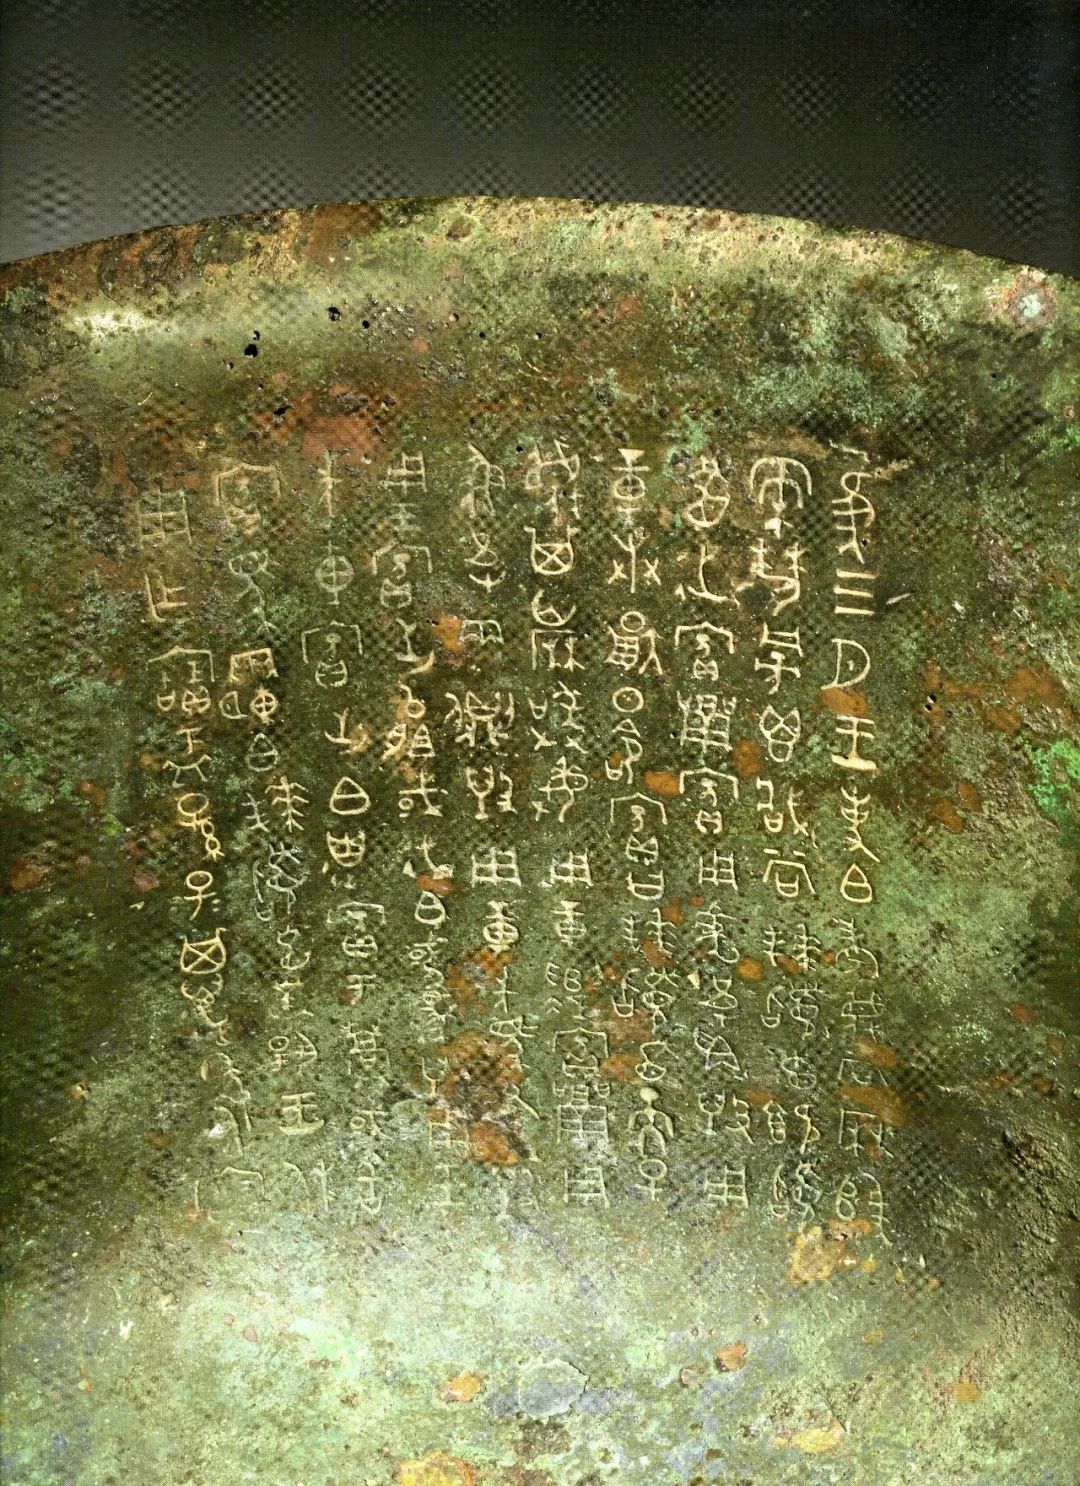 隹三月王史白考蔑尚曆歸
柔旁鬯臧尚拜稽首既稽
首延賓瓚賓用虎皮爯毀用
章奉翌日命賓曰拜稽首天子
蔑其亡曆敢敏用章遣賓瓚用
魚皮兩側毀用章先馬原毀
用玉賓出以俎或延白或原毀用玉
先車賓出白遺賓于蒿或舍
賓馬霸白拜稽首對揚王休
用乍寶盂孫子子其萬年永寶